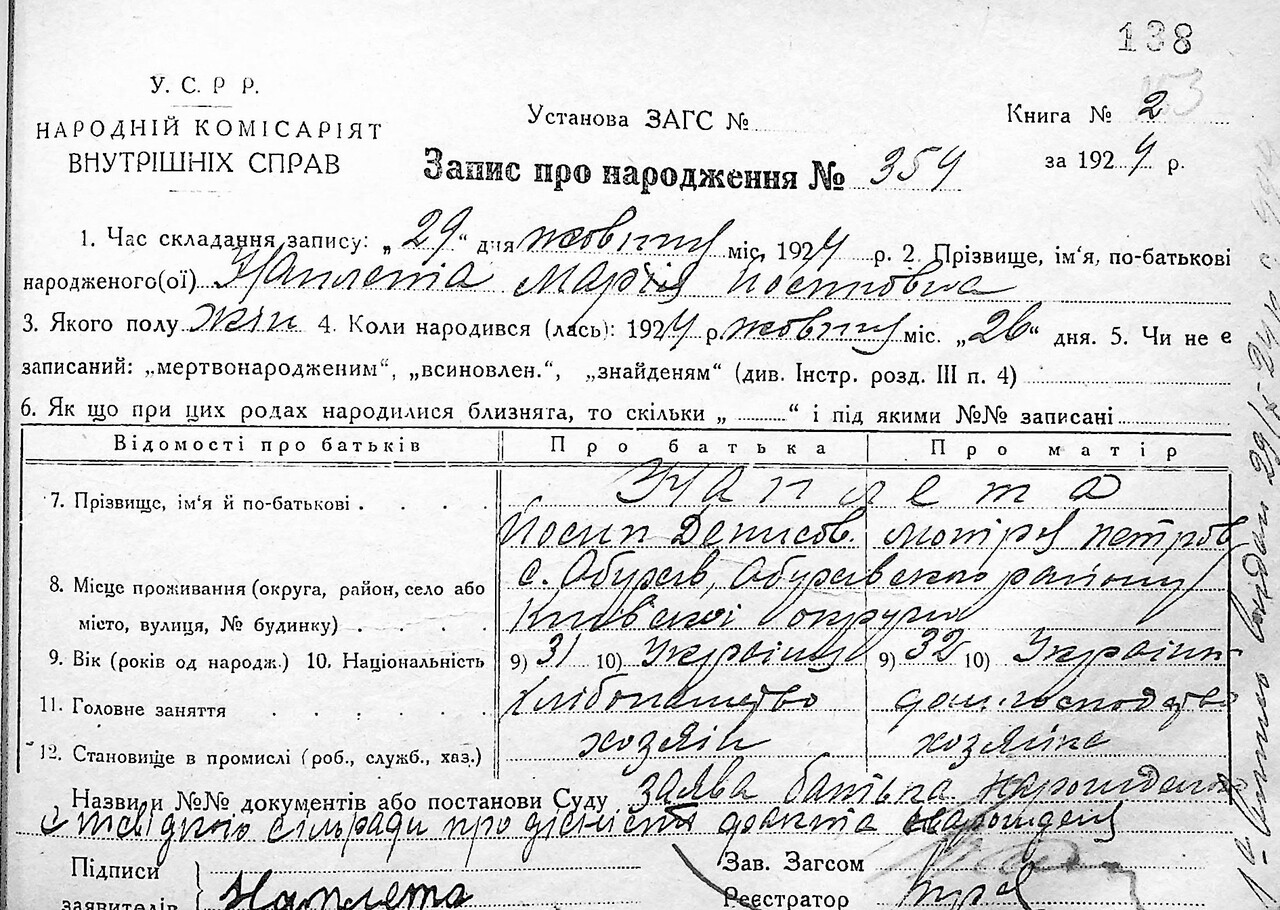 138
153
У. С. Р Р.
НАРОДНІЙ КОМІСАРІЯТ
ВНУТРІШНІХ СПРАВ
Установа ЗАГС №
Книга № 2
за 1924 р.
Запис про народження № 354
1. Час складання запису: „ 29 “ дня жовтня міс. 1924 р. 2. Прізвище, ім'я, по-батькові
народженого(ої) Наплета Марія Йосиповна
3. Якого полу жін 4. Коли народився (лась): 1924 р. жовтня міс. „ 26 “ дня. 5. Чи не є
записаний: „мертвонародженим“, „всиновлен.“, „знайденям“ (див. Інстр. розд. III п. 4)
6. Як що при цих родах народилися близнята, то скільки „ “ і під якими №№ записані
Відомості про батьків Про батька Про матір
Наплета
7. Прізвище, ім'я й по-батькові
Йосип Денисов. Мотря Петров
8. Місце проживання (округа, район, село або
с. Обухів, Обухівського району
місто, вулиця, № будинку) Київської округи
9. Вік (років од народж.) 10. Національність 9) 31 10) Українец 9) 32 10) Українк
11. Головне заняття хлібопашество дом. господарство
12. Становище в промислі (роб., служб., хаз.) хозяїн хозяйка
Назви и №№ документів або постанови Суду заява батька народженої
с посвідкою сільради про дійсність факта народження
Підписи Зав. Загсом
заявителів Наплета Реєстратор